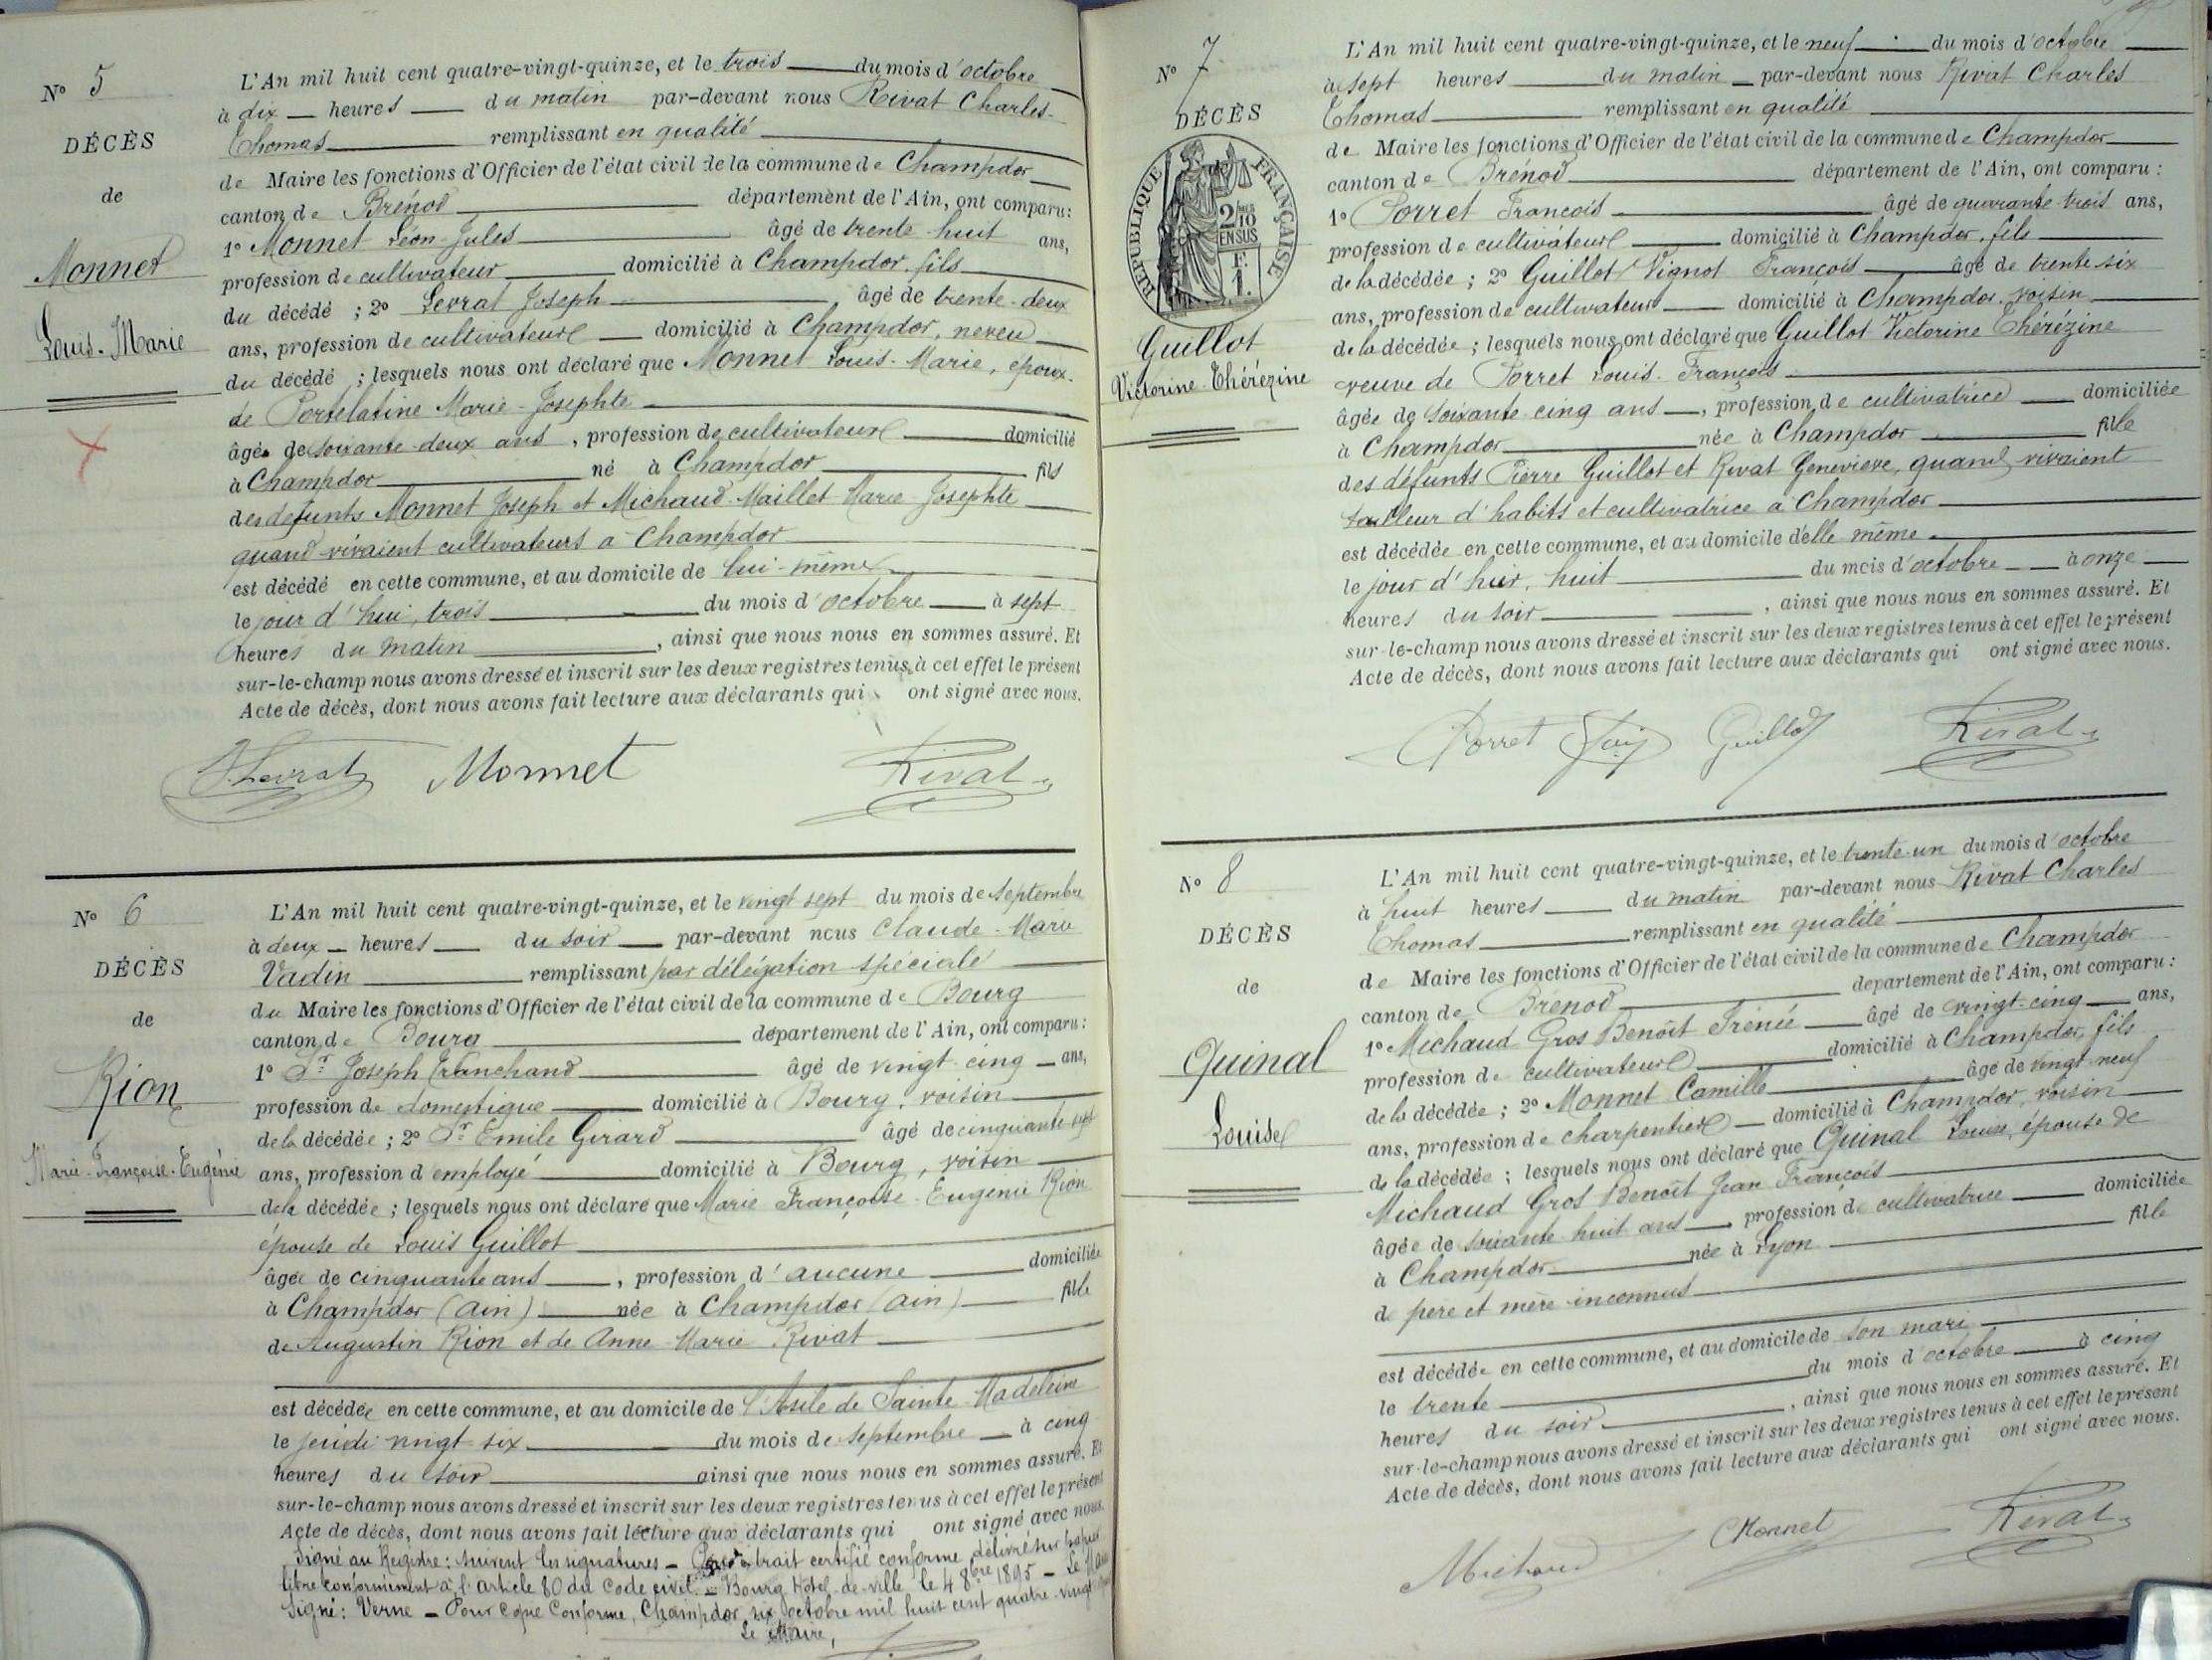 N° 5
DÉCÈS
de
Monnet
Louis-Marie
L'An mil huit cent quatre-vingt-quinze, et le trois du mois d'octobre
à dix heures du matin par-devant nous Rivat Charles-
Thomas remplissant en qualité
de Maire les fonctions d'Officier de l'état civil de la commune de Champdor
canton de Brénod département de l'Ain, ont comparu:
1° Monnet Léon-Jules âgé de trente-huit ans,
profession de cultivateur domicilié à Champdor, fils
du décédé ; 2° Levrat Joseph âgé de trente-deux
ans, profession de cultivateur domicilié à Champdor, neveu
du décédé ; lesquels nous ont déclaré que Monnet Louis-Marie, époux
de Portelatine Marie-Josephte
âgé de soixante-deux ans, profession de cultivateur domicilié
à Champdor né à Champdor fils
des défunts Monnet Joseph et Michaud-Maillet Marie-Josephte
quand vivaient cultivateurs à Champdor
est décédé en cette commune, et au domicile de lui-même
le jour d'hui, trois du mois d'octobre à sept
heures du matin, ainsi que nous nous en sommes assuré. Et
sur-le-champ nous avons dressé et inscrit sur les deux registres tenus à cet effet le présent
Acte de décès, dont nous avons fait lecture aux déclarants qui ont signé avec nous.
Levrat Monnet Rivat
N° 6
DÉCÈS
de
Rion
Marie-Françoise-Eugénie
L'An mil huit cent quatre-vingt-quinze, et le vingt sept du mois de septembre
à deux heures du soir par-devant nous Claude-Marie
Vadin remplissant par délégation spéciale
du Maire les fonctions d'Officier de l'état civil de la commune de Bourg
canton de Bourg département de l'Ain, ont comparu:
1° Sr Joseph Tranchand âgé de vingt-cinq ans,
profession de domestique domicilié à Bourg, voisin
de la décédée ; 2° Sr Emile Girard âgé de cinquante-sept
ans, profession d'employé domicilié à Bourg, voisin
de la décédée ; lesquels nous ont déclaré que Marie Françoise-Eugénie Rion
épouse de Louis Guillot
âgée de cinquante ans, profession d'aucune domiciliée
à Champdor (Ain) née à Champdor (Ain) fille
de Augustin Rion et de Anne-Marie Rivat
est décédée en cette commune, et au domicile de l'Asile de Sainte-Madeleine
le jeudi vingt six du mois de septembre à cinq
heures du soir ainsi que nous nous en sommes assuré. Et
sur-le-champ nous avons dressé et inscrit sur les deux registres tenus à cet effet le présent
Acte de décès, dont nous avons fait lecture aux déclarants qui ont signé avec nous.
Signé au Registre: suivent les signatures - trait certifié conforme délivré sur papier
libre conformément à l'article 80 du Code civil. - Bourg Hôtel-de-ville le 4 8bre 1895 - Le Maire
Signé: Verne - Pour copie conforme, Champdor, six octobre mil huit cent quatre-vingt
Le Maire,
N° 7
DÉCÈS
RÉPUBLIQUE FRANÇAISE
2/10
EN SUS
F.
1.
Guillot
Victorine-Thérézine
L'An mil huit cent quatre-vingt-quinze, et le neuf du mois d'octobre
à sept heures du matin par-devant nous Rivat Charles
Thomas remplissant en qualité
de Maire les fonctions d'Officier de l'état civil de la commune de Champdor
canton de Brénod département de l'Ain, ont comparu:
1° Porret François âgé de quarante-trois ans,
profession de cultivateur domicilié à Champdor, fils
de la décédée ; 2° Guillot Vignot François âgé de trente six
ans, profession de cultivateur domicilié à Champdor, voisin
de la décédée ; lesquels nous ont déclaré que Guillot Victorine Thérézine
veuve de Porret Louis-François
âgée de soixante-cinq ans, profession de cultivatrice domiciliée
à Champdor née à Champdor fille
des défunts Pierre Guillot et Rivat Geneviève, quand vivaient
tailleur d'habits et cultivatrice à Champdor
est décédée en cette commune, et au domicile d'elle-même
le jour d'hier, huit du mois d'octobre à onze
heures du soir, ainsi que nous nous en sommes assuré. Et
sur-le-champ nous avons dressé et inscrit sur les deux registres tenus à cet effet le présent
Acte de décès, dont nous avons fait lecture aux déclarants qui ont signé avec nous.
Porret Guillot Rivat
N° 8
DÉCÈS
de
Quinal
Louise
L'An mil huit cent quatre-vingt-quinze, et le trente-un du mois d'octobre
à huit heures du matin par-devant nous Rivat Charles
Thomas remplissant en qualité
de Maire les fonctions d'Officier de l'état civil de la commune de Champdor
canton de Brénod département de l'Ain, ont comparu:
1° Michaud Gros Benoît Irénée âgé de vingt-cinq ans,
profession de cultivateur domicilié à Champdor, fils
de la décédée ; 2° Monnet Camille âgé de vingt-neuf
ans, profession de charpentier domicilié à Champdor, voisin
de la décédée ; lesquels nous ont déclaré que Quinal Louise, épouse de
Michaud Gros Benoît Jean François
âgée de soixante-huit ans profession de cultivatrice domiciliée
à Champdor née à Lyon fille
de père et mère inconnus
est décédée en cette commune, et au domicile de son mari
le trente du mois d'octobre à cinq
heures du soir, ainsi que nous nous en sommes assuré. Et
sur-le-champ nous avons dressé et inscrit sur les deux registres tenus à cet effet le présent
Acte de décès, dont nous avons fait lecture aux déclarants qui ont signé avec nous.
Michaud CMonnet Rivat